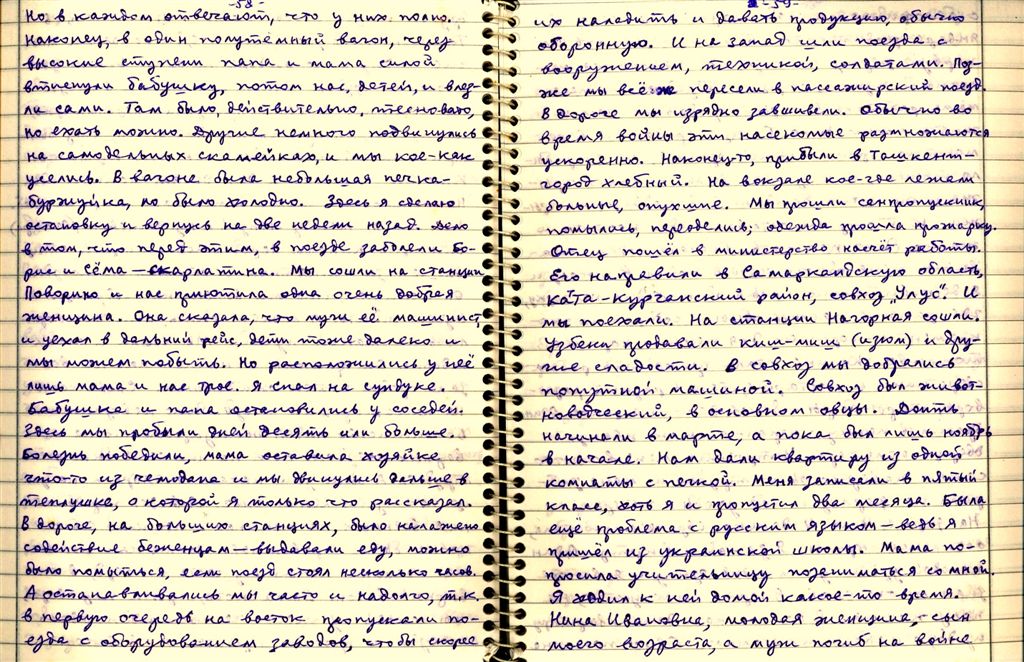 -58-
Но в каждом отвечают, что у них полно.
Наконец, в один полутёмный вагон, через
высокие ступени папа и мама силой
втиснули бабушку, потом нас, детей, и влез-
ли сами. Там было, действительно, тесновато,
но ехать можно. Другие немного подвинулись
на самодельных скамейках, и мы кое-как
уселись. В вагоне была небольшая печка-
буржуйка, но было холодно. Здесь я сделаю
остановку и вернусь на две недели назад. Дело
в том, что перед этим, в поезде заболели Бо-
рис и Сёма — скарлатина. Мы сошли на станции
Поворино и нас приютила одна очень добрая
женщина. Она сказала, что муж её машинист,
и уехал в дальний рейс, дети тоже далеко и
мы можем побыть. Но расположились у неё
лишь мама и нас трое. Я спал на сундуке.
Бабушка и папа остановились у соседей.
Здесь мы пробыли дней десять или больше.
Болезнь победили, мама оставила хозяйке
что-то из чемодана и мы двинулись дальше в
теплушке, о которой я только что рассказал.
В дороге, на больших станциях, было налажено
содействие беженцам — выдавали еду, можно
было помыться, если поезд стоял несколько часов.
А останавливались мы часто и надолго, т.к.
в первую очередь на восток пропускали по-
езда с оборудованием заводов, чтобы скорее
-59-
их наладить и давать продукцию, обычно
оборонную. И на запад шли поезда с
вооружением, техникой, солдатами. Поз-
же мы всё же пересели в пассажирский поезд.
В дороге мы изрядно завшивели. Обычно во
время войны эти насекомые размножаются
ускоренно. Наконец-то, прибыли в Ташкент-
город хлебный. На вокзале кое-где лежат
больные, опухшие. Мы прошли санпропускник,
помылись, переоделись; одежда прошла прожарку.
Отец пошёл в министерство насчёт работы.
Его направили в Самаркандскую область,
Ката-Курганский район, совхоз „Улус". И
мы поехали. На станции Нагорная сошли.
Узбеки продавали киш-миш (изюм) и дру-
гие сладости. В совхоз мы добрались
попутной машиной. Совхоз был живот-
новодческий, в основном овцы. Доить
начинали в марте, а пока был лишь ноябрь
в начале. Нам дали квартиру из одной
комнаты с печкой. Меня записали в пятый
класс, хоть я и пропустил два месяца. Была
ещё проблема с русским языком — ведь я
пришёл из украинской школы. Мама по-
просила учительницу позаниматься со мной.
Я ходил к ней домой какое-то время.
Нина Ивановна, молодая женщина, - сын
моего возраста, а муж погиб на войне